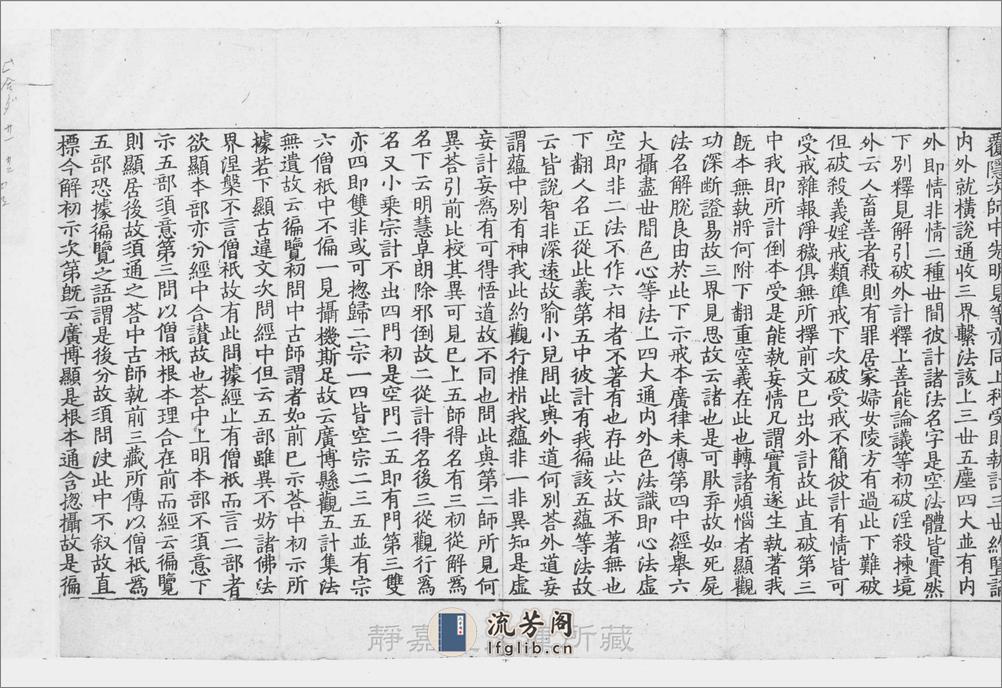 覆隱次師中先明見等亦同上科受即執計三世約豎論
内外就橫説通收三界繫法該上三世五塵四大並有内
外即情非情二種世間彼計諸法名字是空法體皆實然
下別釋見解引破外計釋上善能論議等初破淫殺揀境
外云人畜善者殺則有罪居家婦女陵方有過此下難破
但破殺義婬戒類準戒下次破受戒不簡彼計有情皆可
受戒雜報淨穢俱無所擇前文已出外計故此直破第三
中我即所計倒本受是能執妄情凡謂實有遂生執著我
既本無執將何附下翻重空義在此也轉諸煩惱者顯觀
功深断證易故三界見思故云諸也是可猒弃故如死屍
法名解脱良由於此下示戒本廣律未傳第四中經舉六
大攝盡世間色心等法上四大通内外色法識即心法虛
空即非二法不作六相者不著有也存此六故不著無也
下翻人名正從此義第五中彼計有我徧該五藴等法故
云皆説智非深遠故喻小兒問此與外道何別荅外道妄
謂藴中別有神我此約觀行推栺我藴非一非異知是虛
妄計妄爲有可得悟道故不同也問此與第二師所見何
異荅引前比校其異可見已上五師得名有三初從解爲
名下云明慧卓朗除邪倒故二從計得名後三從觀行爲
名又小乘宗計不出四門初是空門二五即有門第三雙
亦四即雙非或可揔歸二宗一四皆空宗二三五並有宗
六僧祇中不偏一見攝機斯足故云廣博縣觀五計集法
無遺故云徧覽初問中古師謂者如前已示荅中初示所
據若下顯古違文次問經中但云五部雖異不妨諸佛法
界涅槃不言僧祇故有此問據經止有僧祇而言二部者
欲顯本部亦分經中合讃故也荅中上明本部不須意下
示五部須意第三問以僧祇根本理合在前而經云徧覽
則顯居後故須通之荅中古師執前三藏所傳以僧祇爲
五部恐據徧覽之語謂是後分故須問決此中不叙故直
標今解初示次第既云廣博顯是根本通含揔攝故是徧
靜嘉堂文庫所藏
流芳阁
lfglib.cn